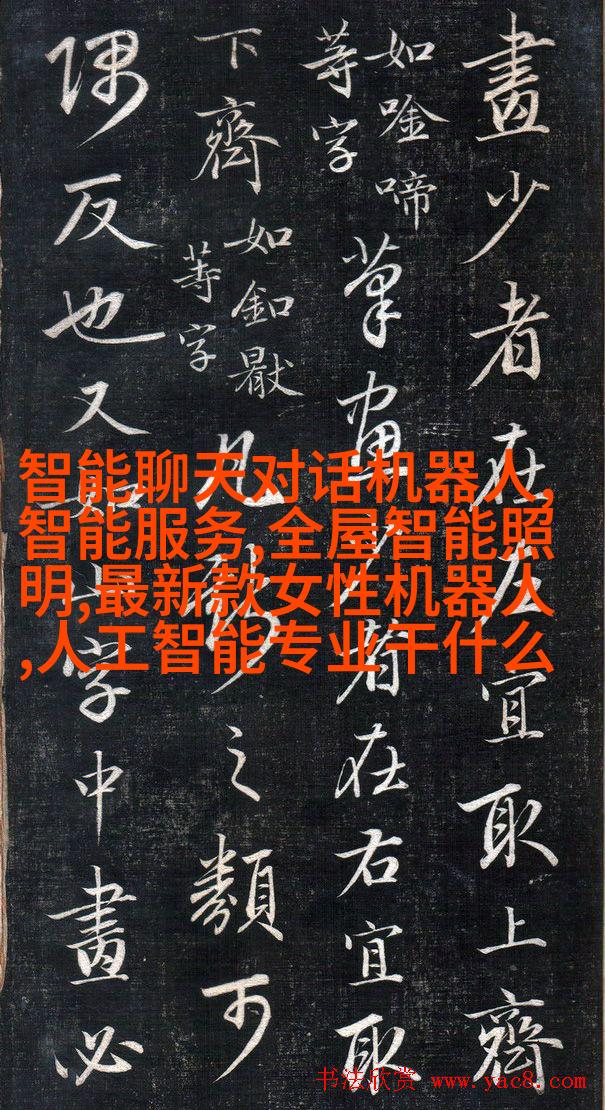 畫少者在左宜取上齊
如唫啼
等字
筆畫少者在右宜取
下齊
如釦
等字
凡少之類可
隅反也又如山字中畫必
智能聊天对话机器人,
智能服务,全屋智能照
明,最新款女性机器人
,人工智能专业干什么
书法欣赏 www.yac8.com